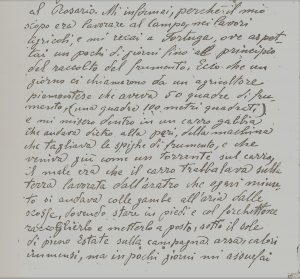 al Rosario. Mi infamai, perchè il mio
scopo era lavorare al campo, nei lavori
agricoli, e mi recai a Tortuga, ove aspet-
tai un pochi di giorni fino al principio
del raccolto del frumento. Ecco che un
giorno ci chiamarono da un agricoltore
piemontese che aveva 50 quadre di fru-
mento, (una quadra 100 metri quadrati,)
e mi misero dentro in un carro gabbia
che andava dietro alla pari, della macchina
che tagliava le spighe di frumento, e che
veniva giù come un torrente sul carro,
il male era che il carro traballava sulla
terra lavorata dall'aratro che ogni minu-
to si andava colle gambe all'aria dalle
scosse, dovendo stare in piedi e col forchettone
raccoglierlo e metterlo a posto, sotto il sole
di piena Estate sulla campagna arsa, calori
immensi, ma in pochi giorni mi assuefai